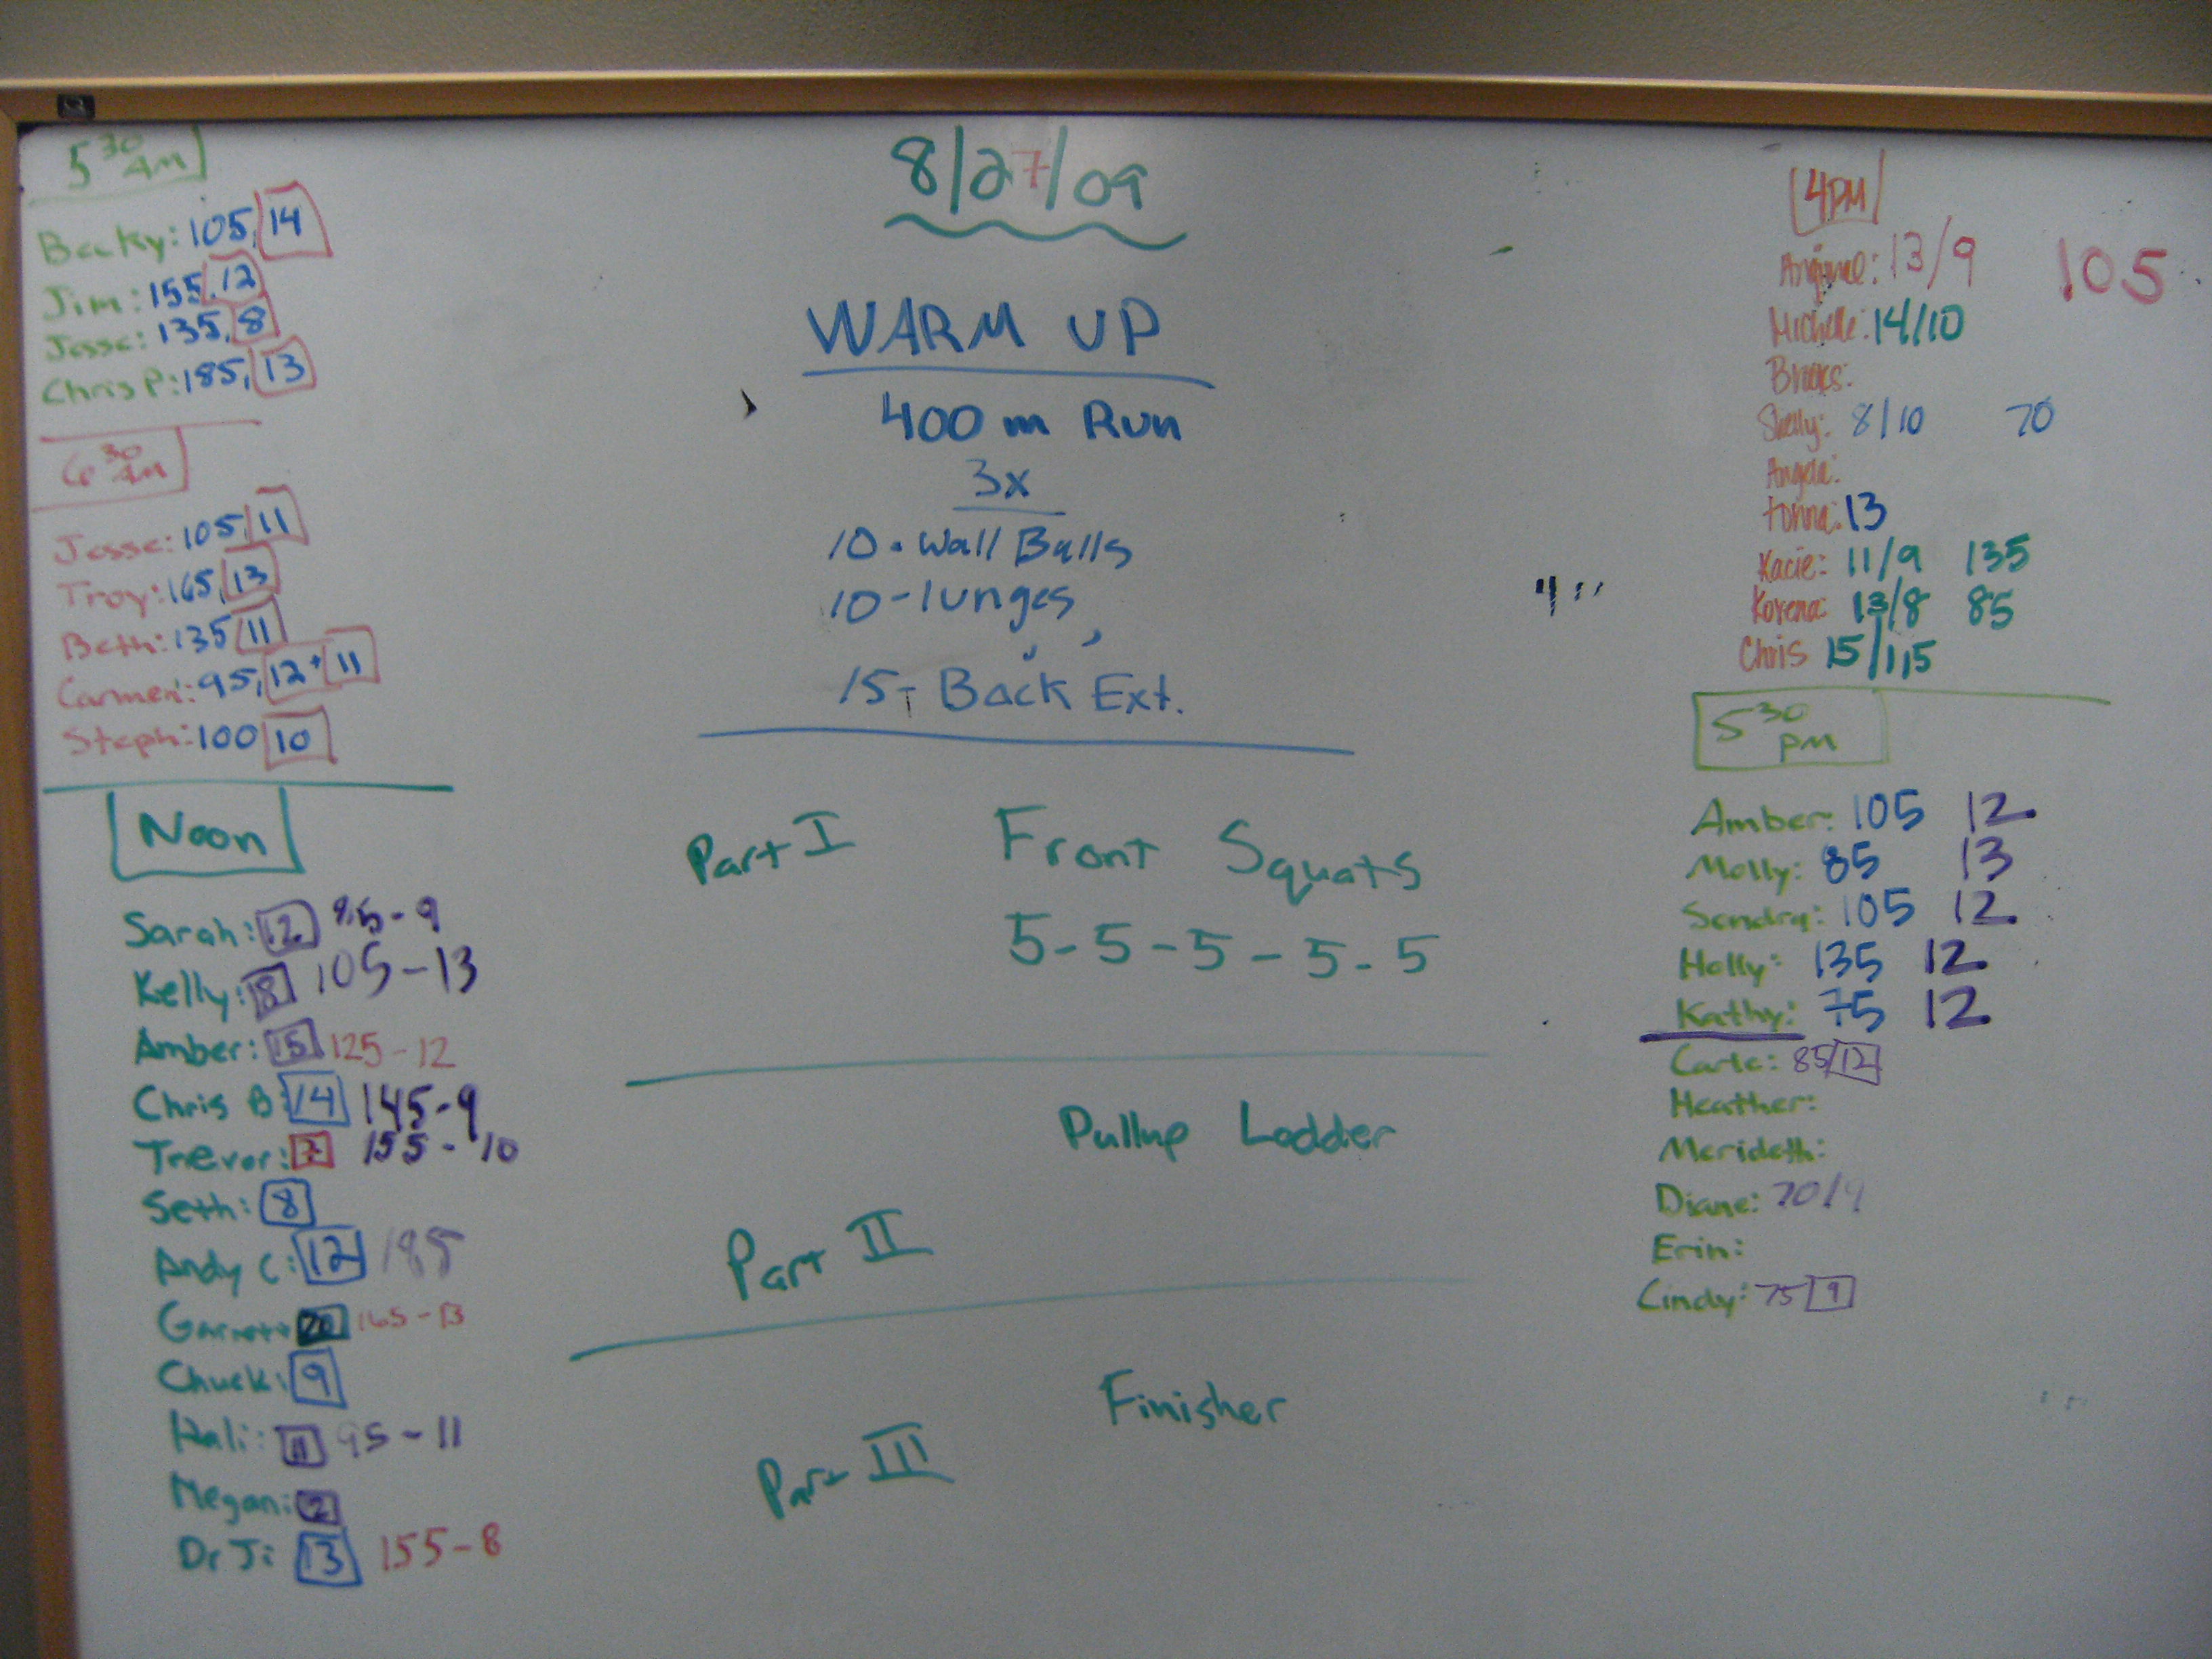 5 30 AM
Becky: 105, 14
Jim: 155, 12
Jesse: 135, 8
Chris P: 185, 13
6 30 AM
Jesse: 105, 11
Troy: 165, 13
Beth: 135, 11
Carmen: 95, 12 + 11
Steph: 100 10
Noon
Sarah: 12 85-9
Kelly: 8 105-13
Amber: 15 125-12
Chris B: 14 145-9
Trevor: 155-10
Seth: 8
Andy C: 12 185
Garrett 165-13
Chuck: 9
Kali: 11 95-11
Megan: 2
Dr J: 13 155-8
8/27/09
WARM UP
400 m Run
3x
10 - Wall Balls
10 - lunges
15 - Back Ext.
Part I Front Squats
5-5-5-5-5
Pullup Ladder
Part II
Finisher
Part III
4PM
13/9 105
Michelle: 14/10
Brooks:
Shelly: 8/10 70
Angela:
13
Kacie: 11/9 135
Korena: 13/8 85
Chris 15/115
5 30 PM
Amber: 105 12
Molly: 85 13
Sondra: 105 12
Holly: 135 12
Kathy: 75 12
Carle: 85/12
Heather:
Merideth:
Diane: 70/9
Erin:
Cindy: 75 9